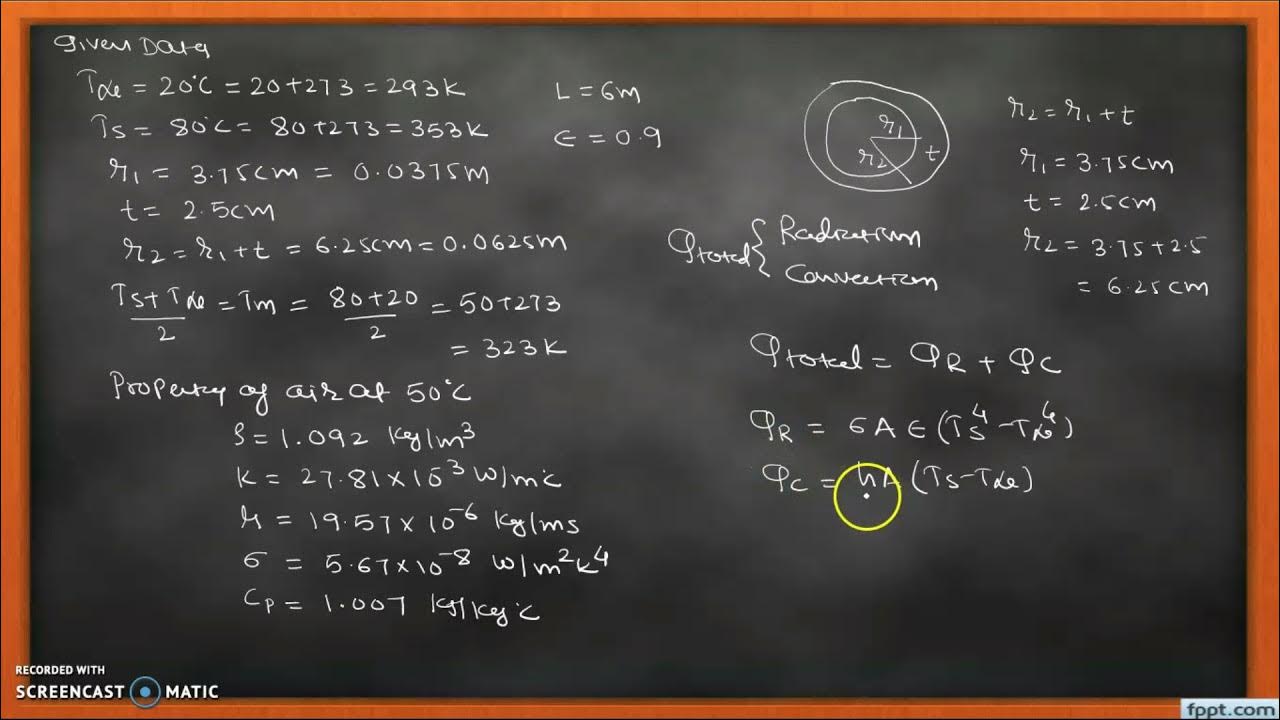 Given Data
T∞ = 20°C = 20+273 = 293K
Ts = 80°C = 80+273 = 353K
r1 = 3.75cm = 0.0375m
t = 2.5cm
r2 = r1+t = 6.25cm = 0.0625m
Ts+T∞/2 = Tm = 80+20/2 = 50+273
= 323K
Property of air at 50°C
ρ = 1.092 Kg/m³
K = 27.81×10³ W/m°C
μ = 19.57×10⁻⁶ Kg/ms
σ = 5.67×10⁻⁸ W/m²K⁴
Cp = 1.007 KJ/Kg°C
L = 6m
ε = 0.9
r1
r2
t
r2 = r1+t
r1 = 3.75cm
t = 2.5cm
r2 = 3.75+2.5
= 6.25cm
Qtotal { Radiation
Convection
Qtotal = QR + QC
QR = σAε(Ts⁴-T∞⁴)
QC = hA(Ts-T∞)
RECORDED WITH
SCREENCAST MATIC
fppt.com